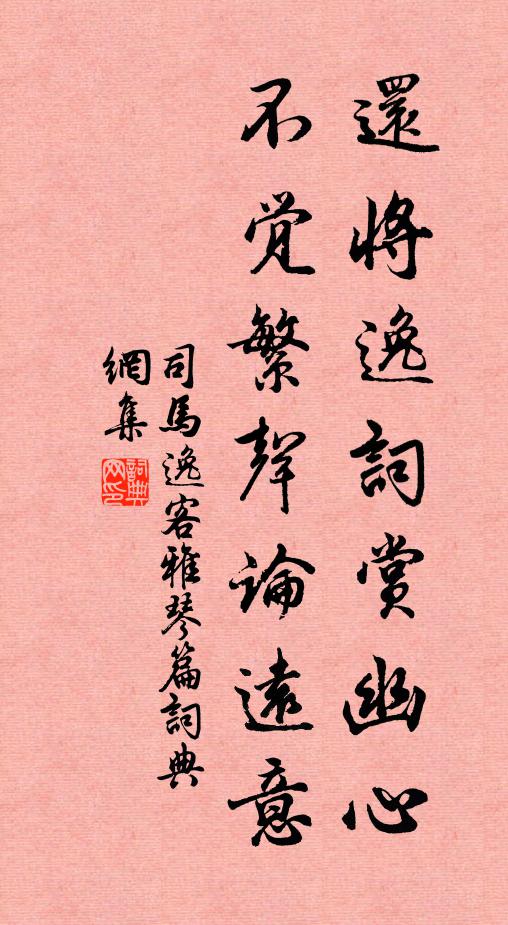 還將逸詞賞幽心
不覚繁聲論遠意
司馬逸客雅琴篇詞典
網集
詞典
网印